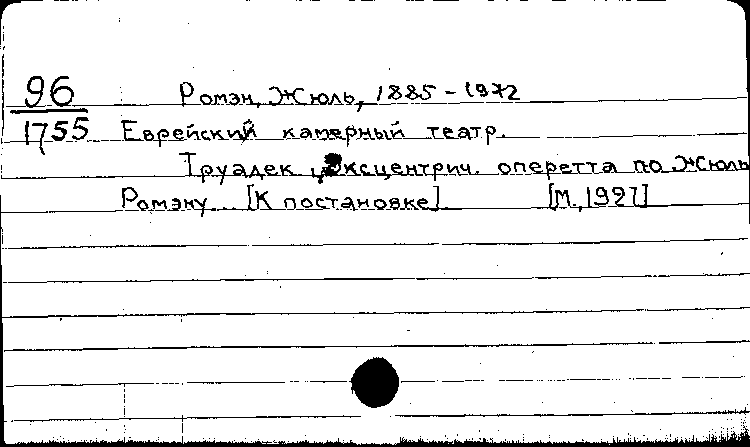 96
1755
Ромэн, Жюль, 1885-1972
Еврейский камерный театр.
Труадек, эксцентрич. оперетта по Жюль
Ромэну... [К постановке] [М., 1927]